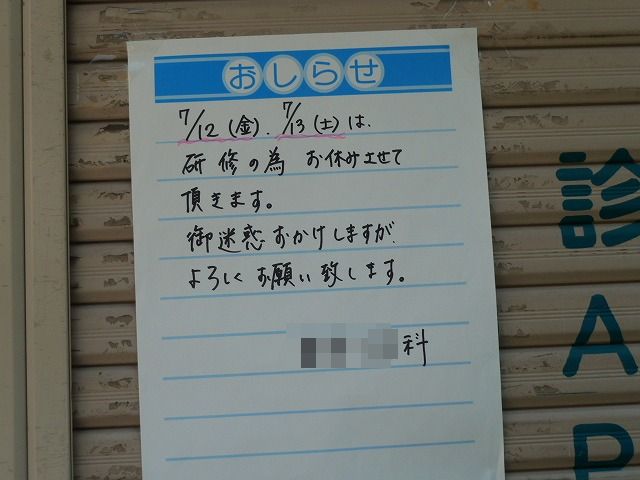 おしらせ
7/12(金)、7/13(土)は、
研修の為 お休みさせて
頂きます。
御迷惑おかけしますが、
よろしくお願い致します。
科
診
A
P